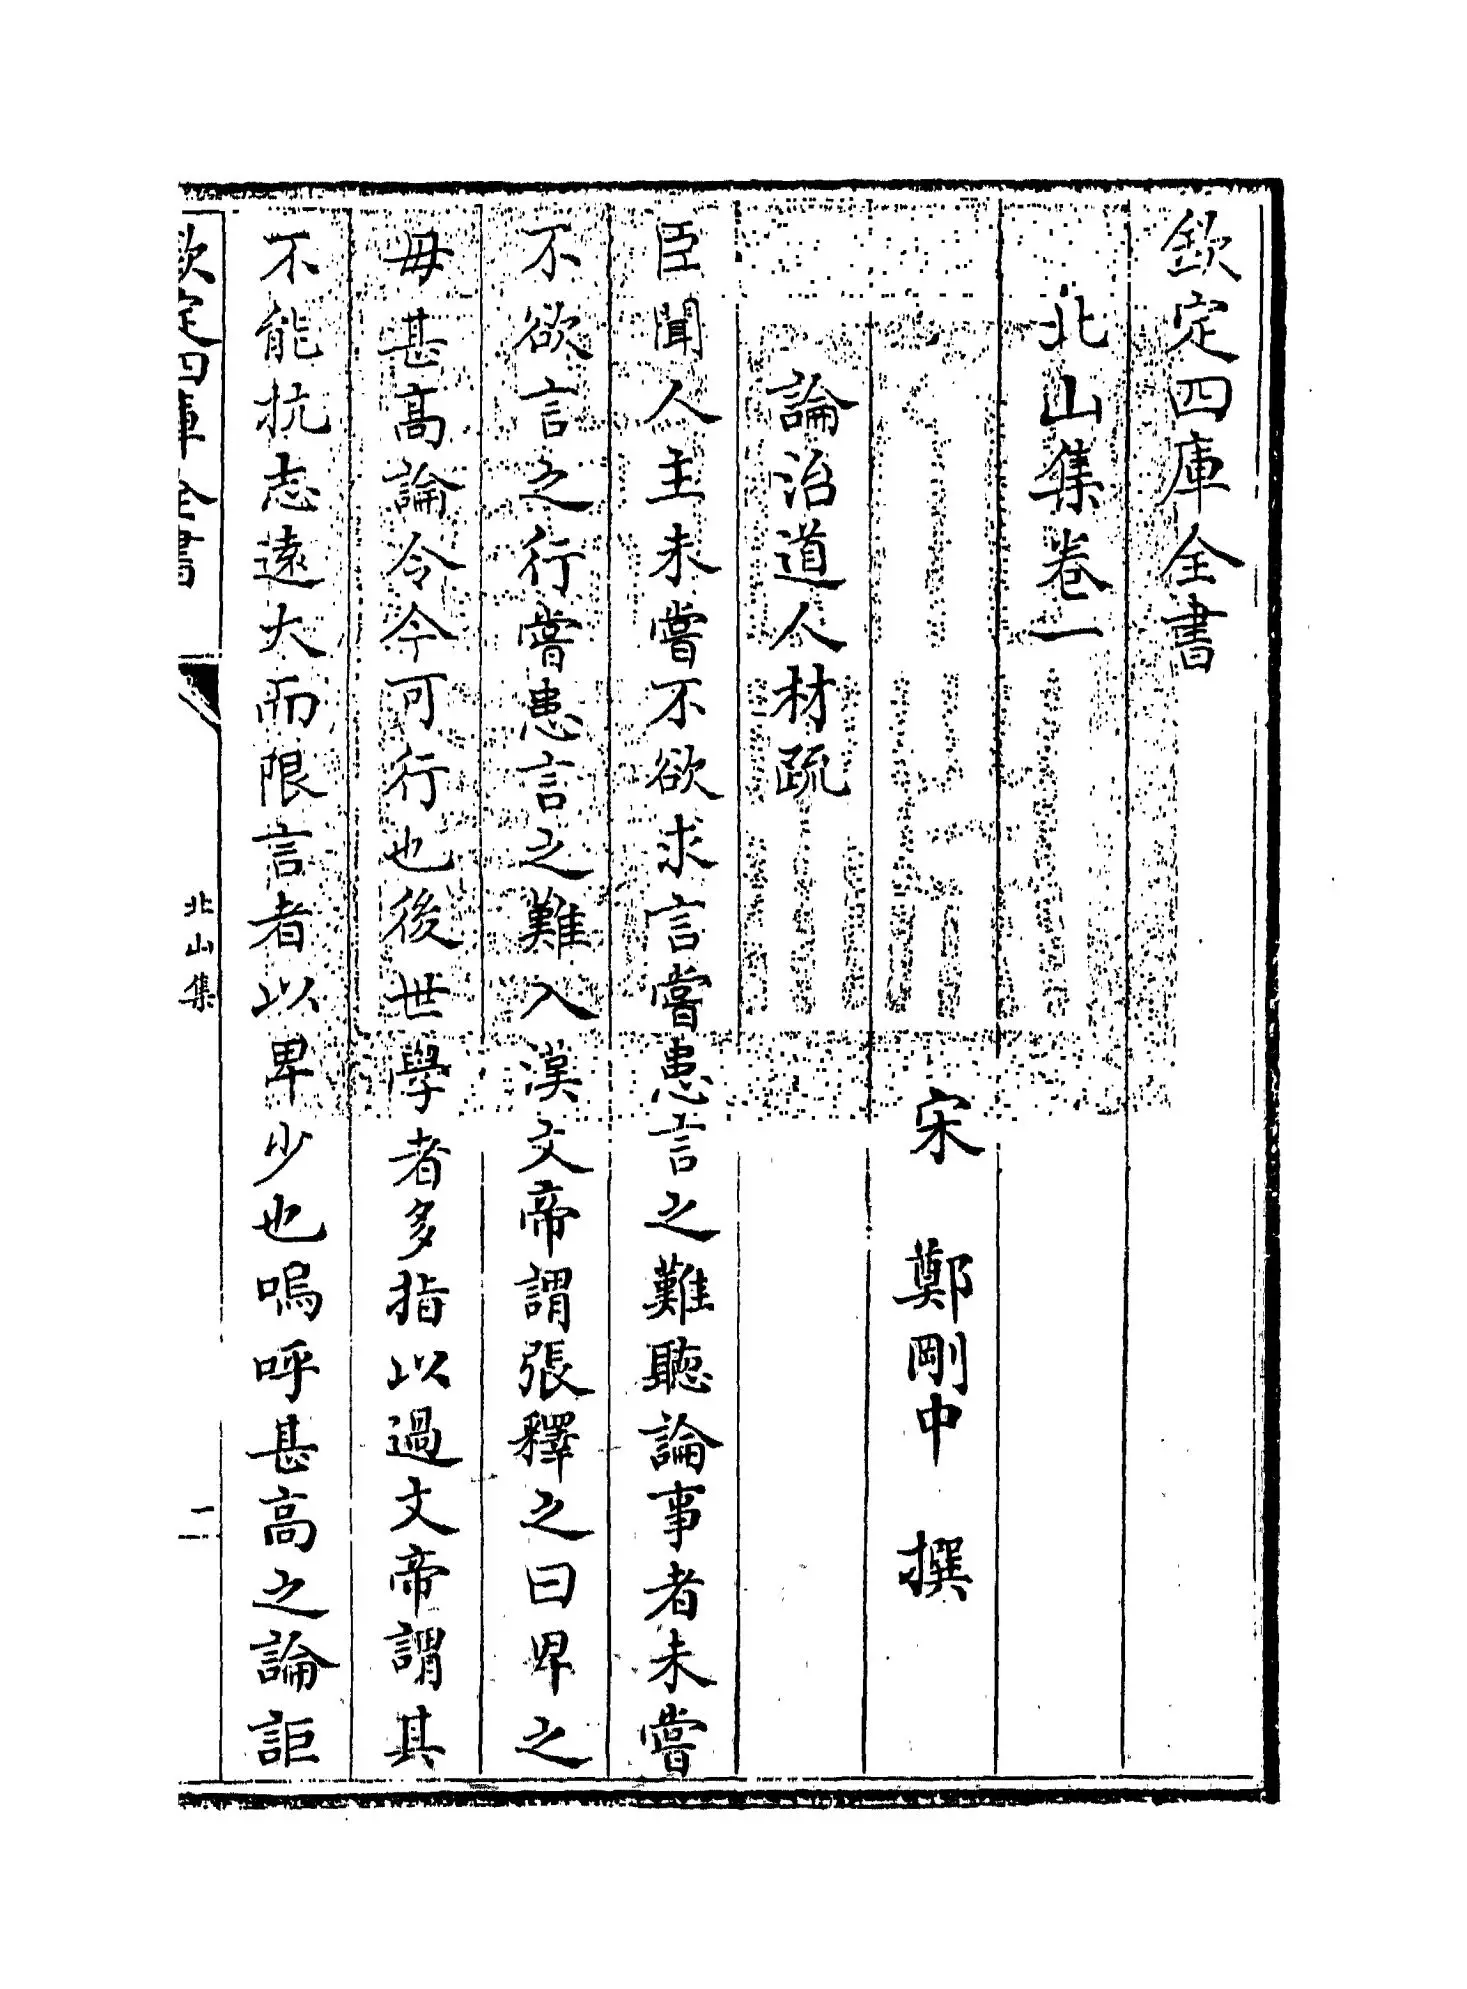 欽定四庫全書
北山集卷一
宋 鄭剛中 撰
論治道人材疏
臣聞人主未嘗不欲求言嘗患言之難聽論事者未嘗
不欲言之行嘗患言之難入漢文帝謂張釋之曰卑之
毋甚髙論令今可行也後世學者多指以過文帝謂其
不能抗志遠大而限言者以卑少也嗚呼甚高之論詎
欽定四庫全書
北山集
一